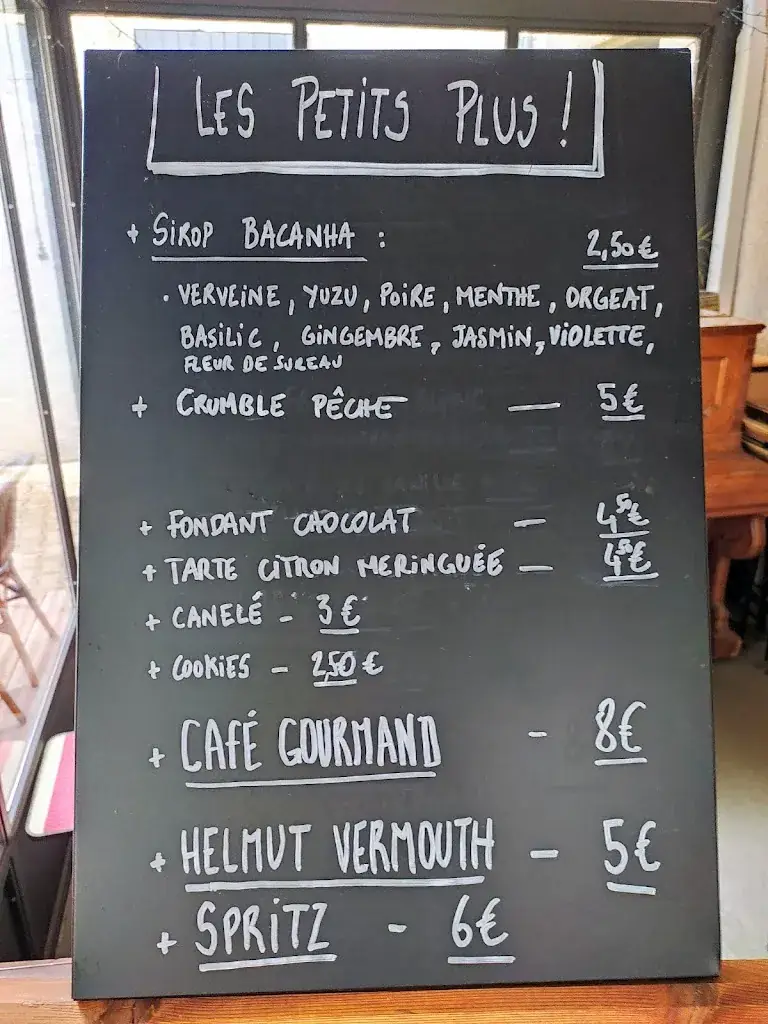 LES PETITS PLUS !
+ SIROP BACANHA : 2,50€
. VERVEINE, YUZU, POIRE, MENTHE, ORGEAT,
BASILIC, GINGEMBRE, JASMIN, VIOLETTE,
FLEUR DE SUREAU
+ CRUMBLE PÊCHE — 5€
+ FONDANT CHOCOLAT — 4,50€
+ TARTE CITRON MERINGUÉE — 4,50€
+ CANELÉ - 3€
+ COOKIES - 2,50€
+ CAFÉ GOURMAND - 8€
+ HELMUT VERMOUTH - 5€
+ SPRITZ - 6€